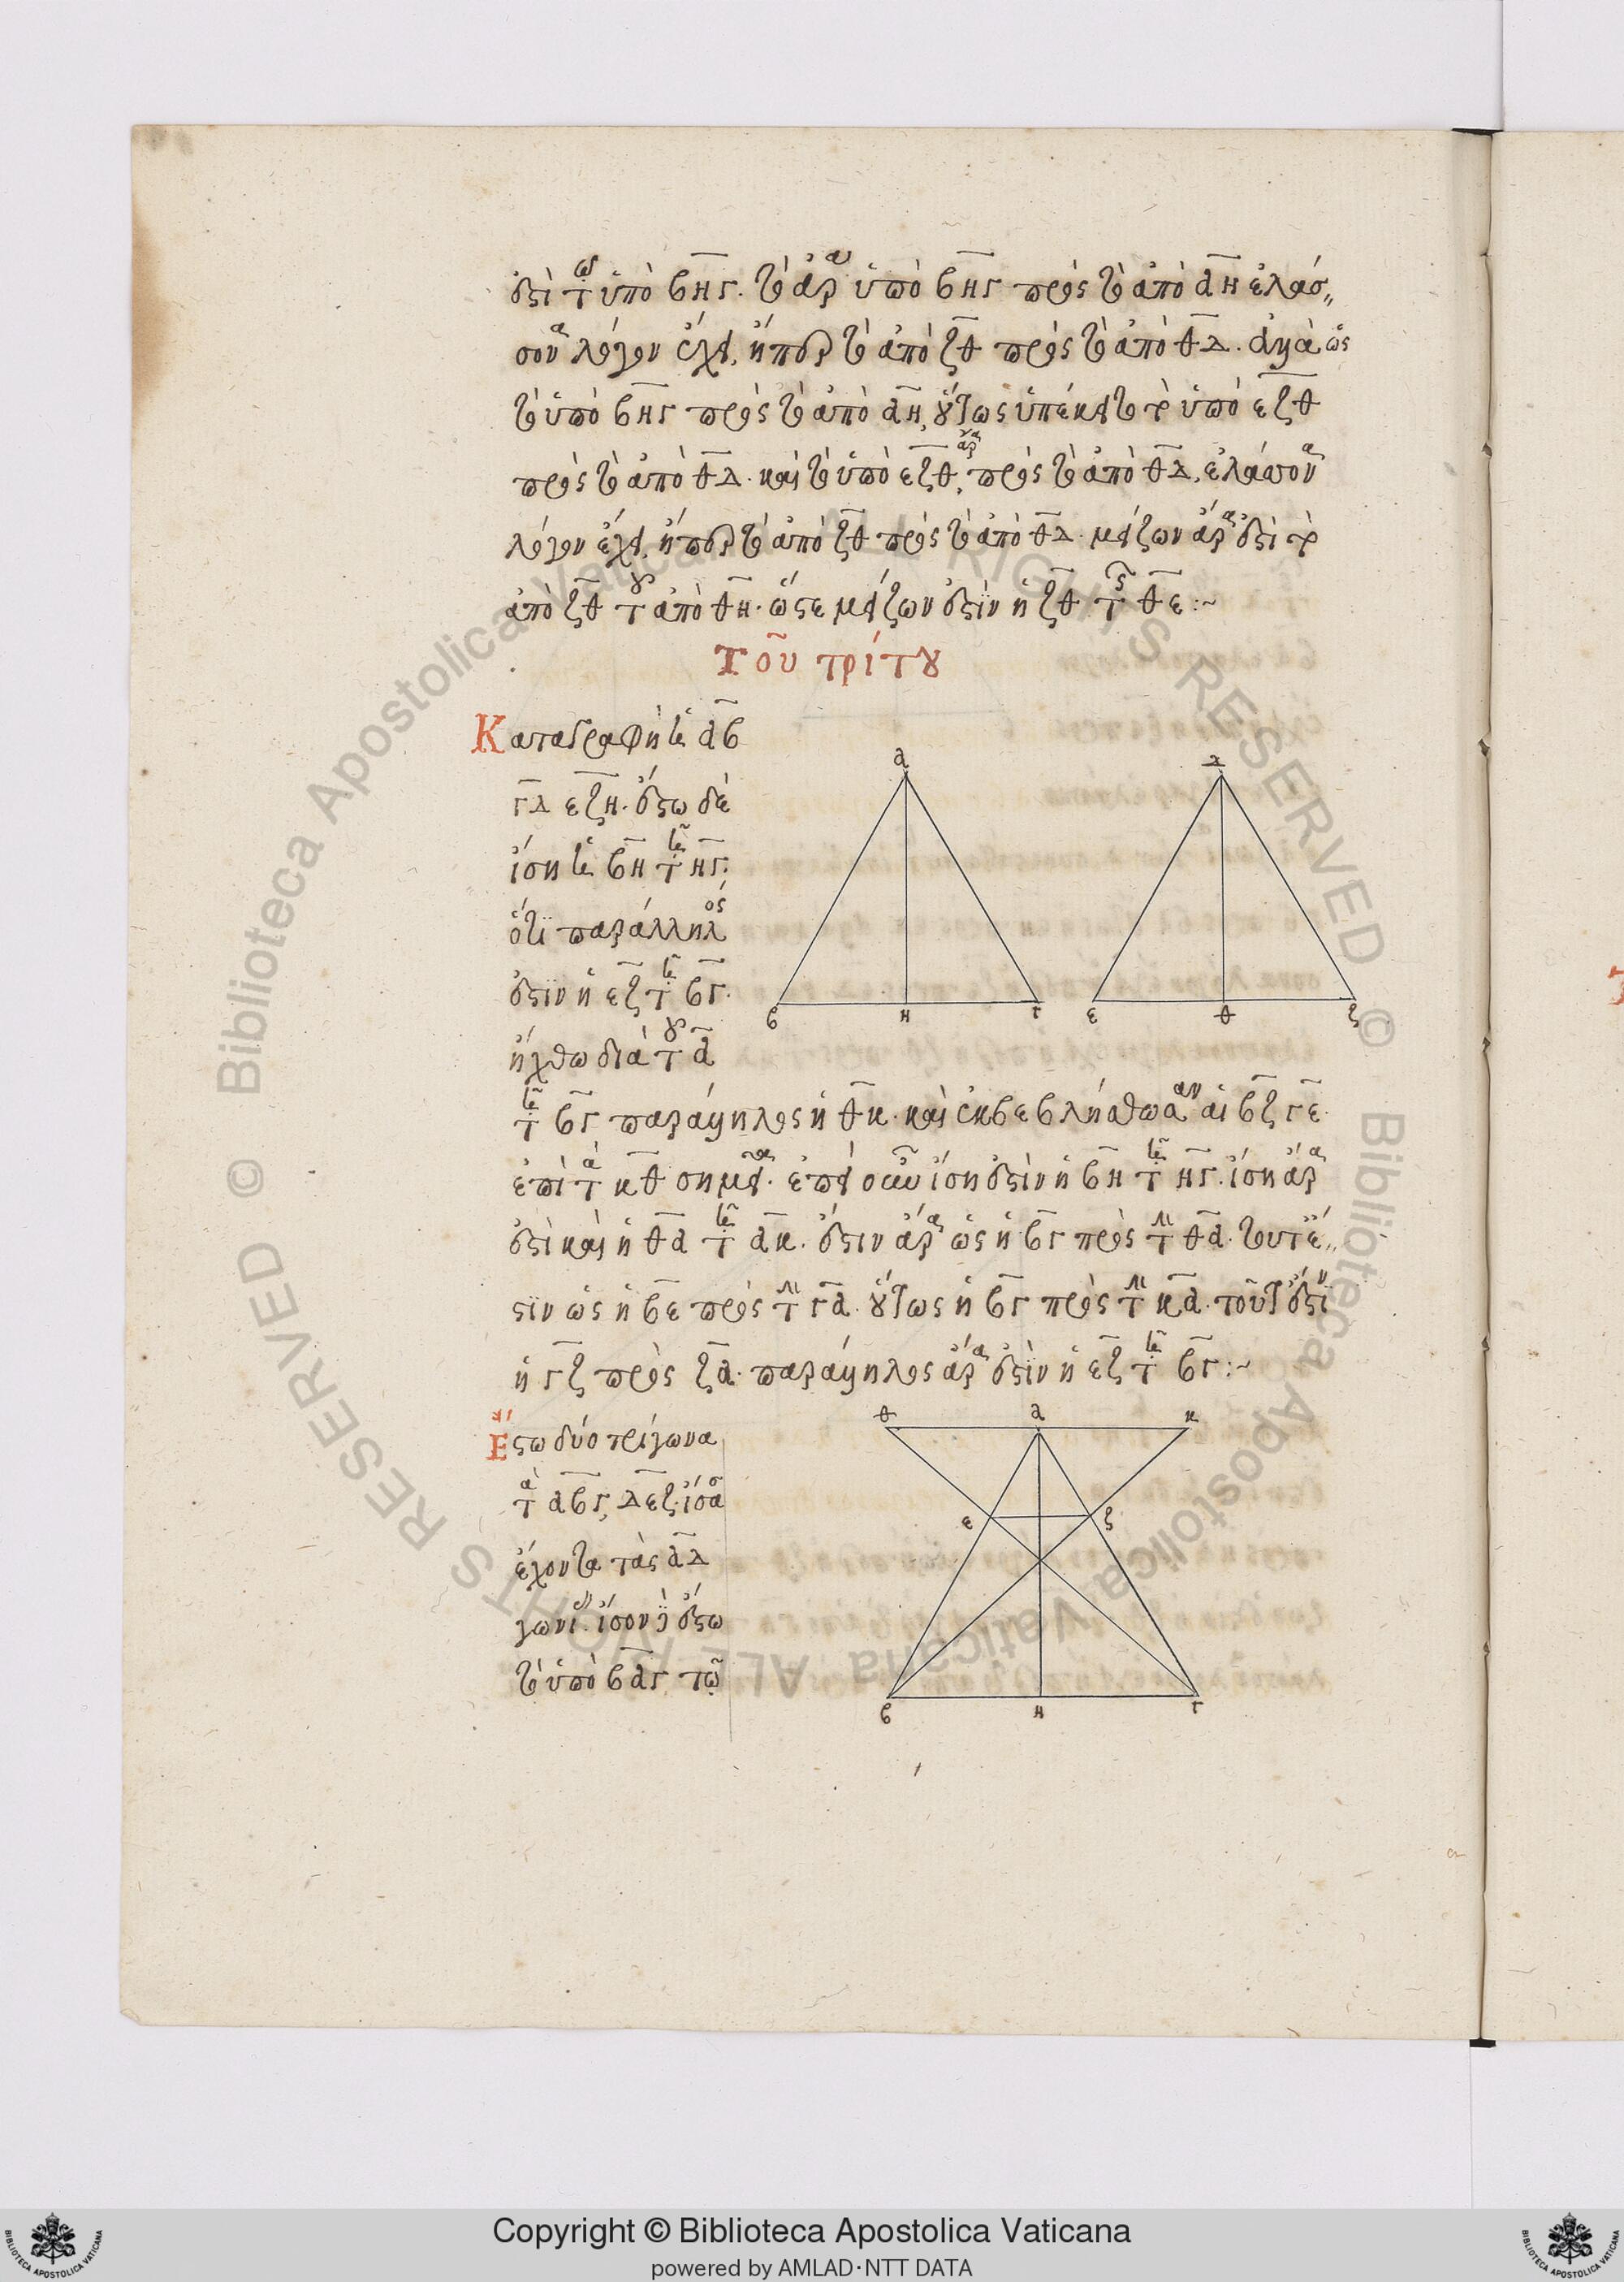 ἐστὶ τῷ ὑπὸ ΒΗΓ. τὸ ἄρα ὑπὸ ΒΗΓ πρὸς τὸ ἀπὸ ΑΗ ἐλάσ„
σονα λόγον ἔχει, ἤπερ τὸ ἀπὸ ΖΘ πρὸς τὸ ἀπὸ ΘΔ. ἀλλὰ ὡς
τὸ ὑπὸ ΒΗΓ πρὸς τὸ ἀπὸ ΑΗ, οὕτως ὑπέκειτο τὸ ὑπὸ ΕΖΘ
πρὸς τὸ ἀπὸ ΘΔ. καὶ τὸ ὑπὸ ΕΖΘ ἄρα, πρὸς τὸ ἀπὸ ΘΔ, ἐλάσσονα
λόγον ἔχει, ἤπερ τὸ ἀπὸ ΖΘ πρὸς τὸ ἀπὸ ΘΔ. μείζων ἄρα ἐστὶ τὸ
ἀπὸ ΖΘ τοῦ ἀπὸ ΘΗ. ὥστε μείζων ἐστὶν ἡ ΖΘ τῆς ΘΕ :~
Τοῦ τρίτου
Καταγραφὴ ἡ ΑΒ
ΓΔ ΕΖΗ. ἔστω δὲ
ἴση ἡ ΒΗ τῇ ΗΓ.
ὅτι παράλληλος
ἐστὶν ἡ ΕΖ τῇ ΒΓ.
ἤχθω διὰ τοῦ Α
τῇ ΒΓ παράλληλος ἡ ΘΚ. καὶ ἐκβεβλήσθωσαν αἱ ΒΖ ΓΕ.
ἐπὶ τὰ ΚΘ σημεῖα. ἐπεὶ οὖν ἴση ἐστὶν ἡ ΒΗ τῇ ΗΓ. ἴση ἄρα
ἐστὶ καὶ ἡ ΘΑ τῇ ΑΚ. ἔστιν ἄρα ὡς ἡ ΒΓ πρὸς τὴν ΘΑ. τουτέ„
στιν ὡς ἡ ΒΕ πρὸς τὴν ΓΑ. οὕτως ἡ ΒΓ πρὸς τὴν ΚΑ. τουτέστιν
ἡ ΓΖ πρὸς ΖΑ. παράλληλος ἄρα ἐστὶν ἡ ΕΖ τῇ ΒΓ :~
Ἔστω δύο τρίγωνα
τὰ ΑΒΓ, ΔΕΖ. ἴσας
ἔχοντα τὰς ΑΔ
γωνίας. ἴσον δὲ ἔστω
τὸ ὑπὸ ΒΑΓ τῷ
Α
Β Η Γ
Δ
Ε Θ Ζ
Θ Α Κ
Ε Ζ
Β Η Γ
Copyright © Biblioteca Apostolica Vaticana
powered by AMLAD·NTT DATA
© Biblioteca Apostolica Vaticana ALL RIGHTS RESERVED
© Biblioteca Apostolica Vaticana ALL RIGHTS RESERVED
BIBLIOTECA APOSTOLICA VATICANA
BIBLIOTECA APOSTOLICA VATICANA